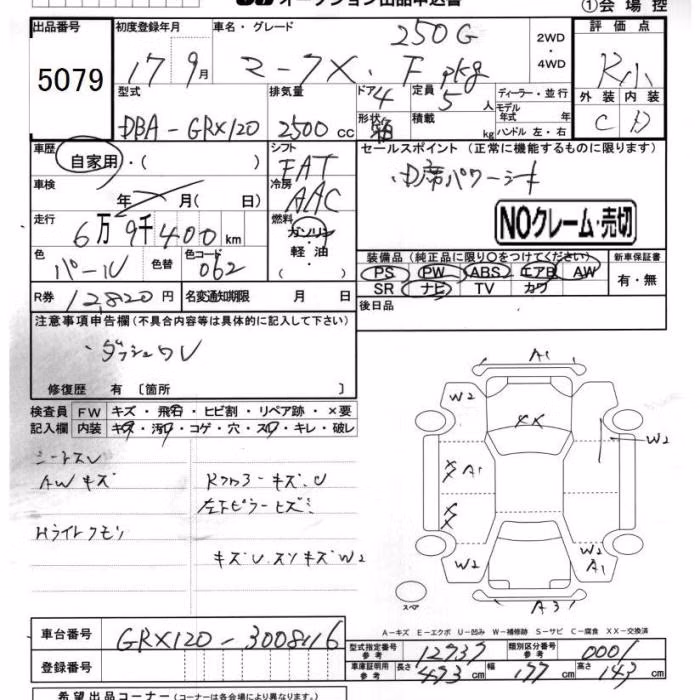 オークション出品申込書
①会場控
出品番号
5079
初度登録年月
17 9月
車名・グレード
250G
マークX. F pkg
2WD
・
4WD
評価点
R小
外装 内装
C D
型式
DBA-GRX120
排気量
2500cc
ドア
4
形状
箱
定員
5人
積載
kg
ディーラー・並行
モデル年式 年
ハンドル 左・右
車歴
自家用・( )
シフト
FAT
車検
年 月( 日)
冷房
AAC
走行
6万9千400km
燃料
ガソリン
・
軽油
・
( )
色
パール
色替
色コード
062
R券 12,820円
名変通知期限 月 日
セールスポイント (正常に機能するものに限ります)
・D席パワーシート
NOクレーム・売切
装備品 (純正品に限り○をつけてください)
PS PW ABS エアB AW
SR ナビ TV カワ
新車保証書
有・無
後日品
注意事項申告欄 (不具合内容等は具体的に記入して下さい)
・ダッシュワレ
修復歴 有 〔箇所 〕
検査員
記入欄
FW キズ・飛石・ヒビ割・リペア跡・×要
内装 キズ・汚れ・コゲ・穴・スレ・キレ・破レ
シートスレ
AWキズ
Hライトクモリ
Rフロアーキズ.U
左下ピラーヒズミ
キズU.スリキズW2
A1
W2
XX
W2
XX
A1
XX
W2
W2
A1
A3
スペア
A－キズ E－エクボ U－凹み W－補修跡 S－サビ C－腐食 XX－交換済
車台番号
GRX120-3008116
登録番号
型式指定番号
参考
12937
類別区分番号
参考
0001
車庫証明用
参考
長さ 473cm 幅 177cm 高さ 143cm
希望出品コーナー (コーナーは各会場により異なります。)